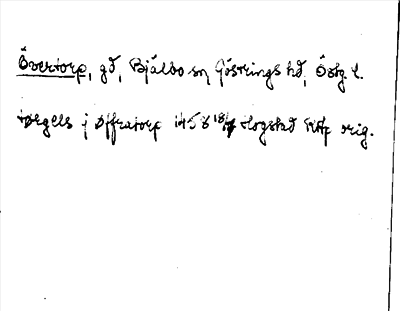 Övertorp, gd, Bjälbo sn, Göstrings hd, Östg. l.
torgels j øffratorp 1458 18/7 Hogstad RAp orig.